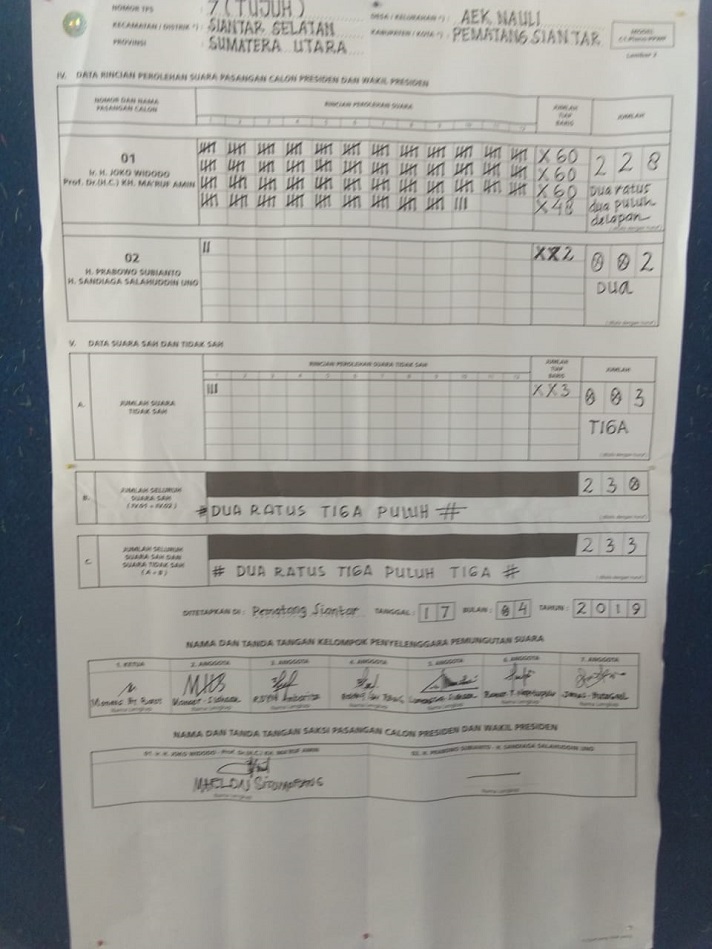 NOMOR TPS : 7 (TUJUH) DESA / KELURAHAN *) : AEK NAULI
KECAMATAN / DISTRIK *) : SIANTAR SELATAN KABUPATEN / KOTA *) : PEMATANG SIANTAR
PROVINSI : SUMATERA UTARA
IV. DATA RINCIAN PEROLEHAN SUARA PASANGAN CALON PRESIDEN DAN WAKIL PRESIDEN
NOMOR DAN NAMA PASANGAN CALON RINCIAN PEROLEHAN SUARA JUMLAH TIAP BARIS JUMLAH
1 2 3 4 5 6 7 8 9 10 11 12
01
Ir. H. JOKO WIDODO
Prof. Dr.(H.C.) KH. MA'RUF AMIN
X60 228
X60
X60 Dua ratus
X48 dua puluh
delapan
02
H. PRABOWO SUBIANTO
H. SANDIAGA SALAHUDDIN UNO
XX2 002
Dua
V. DATA SUARA SAH DAN TIDAK SAH
RINCIAN PEROLEHAN SUARA TIDAK SAH JUMLAH TIAP BARIS JUMLAH
1 2 3 4 5 6 7 8 9 10 11 12
A. JUMLAH SUARA TIDAK SAH XX3 003
TIGA
B. JUMLAH SELURUH SUARA SAH (IV.01 + IV.02) 230
# DUA RATUS TIGA PULUH #
C. JUMLAH SELURUH SUARA SAH DAN SUARA TIDAK SAH (A + B) 233
# DUA RATUS TIGA PULUH TIGA #
DITETAPKAN DI : Pematang Siantar TANGGAL : 17 BULAN : 04 TAHUN : 2019
NAMA DAN TANDA TANGAN KELOMPOK PENYELENGGARA PEMUNGUTAN SUARA
1. KETUA 2. ANGGOTA 3. ANGGOTA 4. ANGGOTA 5. ANGGOTA 6. ANGGOTA 7. ANGGOTA
NAMA DAN TANDA TANGAN SAKSI PASANGAN CALON PRESIDEN DAN WAKIL PRESIDEN
01. Ir. H. JOKO WIDODO - Prof. Dr.(H.C.) KH. MA'RUF AMIN 02. H. PRABOWO SUBIANTO - H. SANDIAGA SALAHUDDIN UNO
MARLON Situmorang